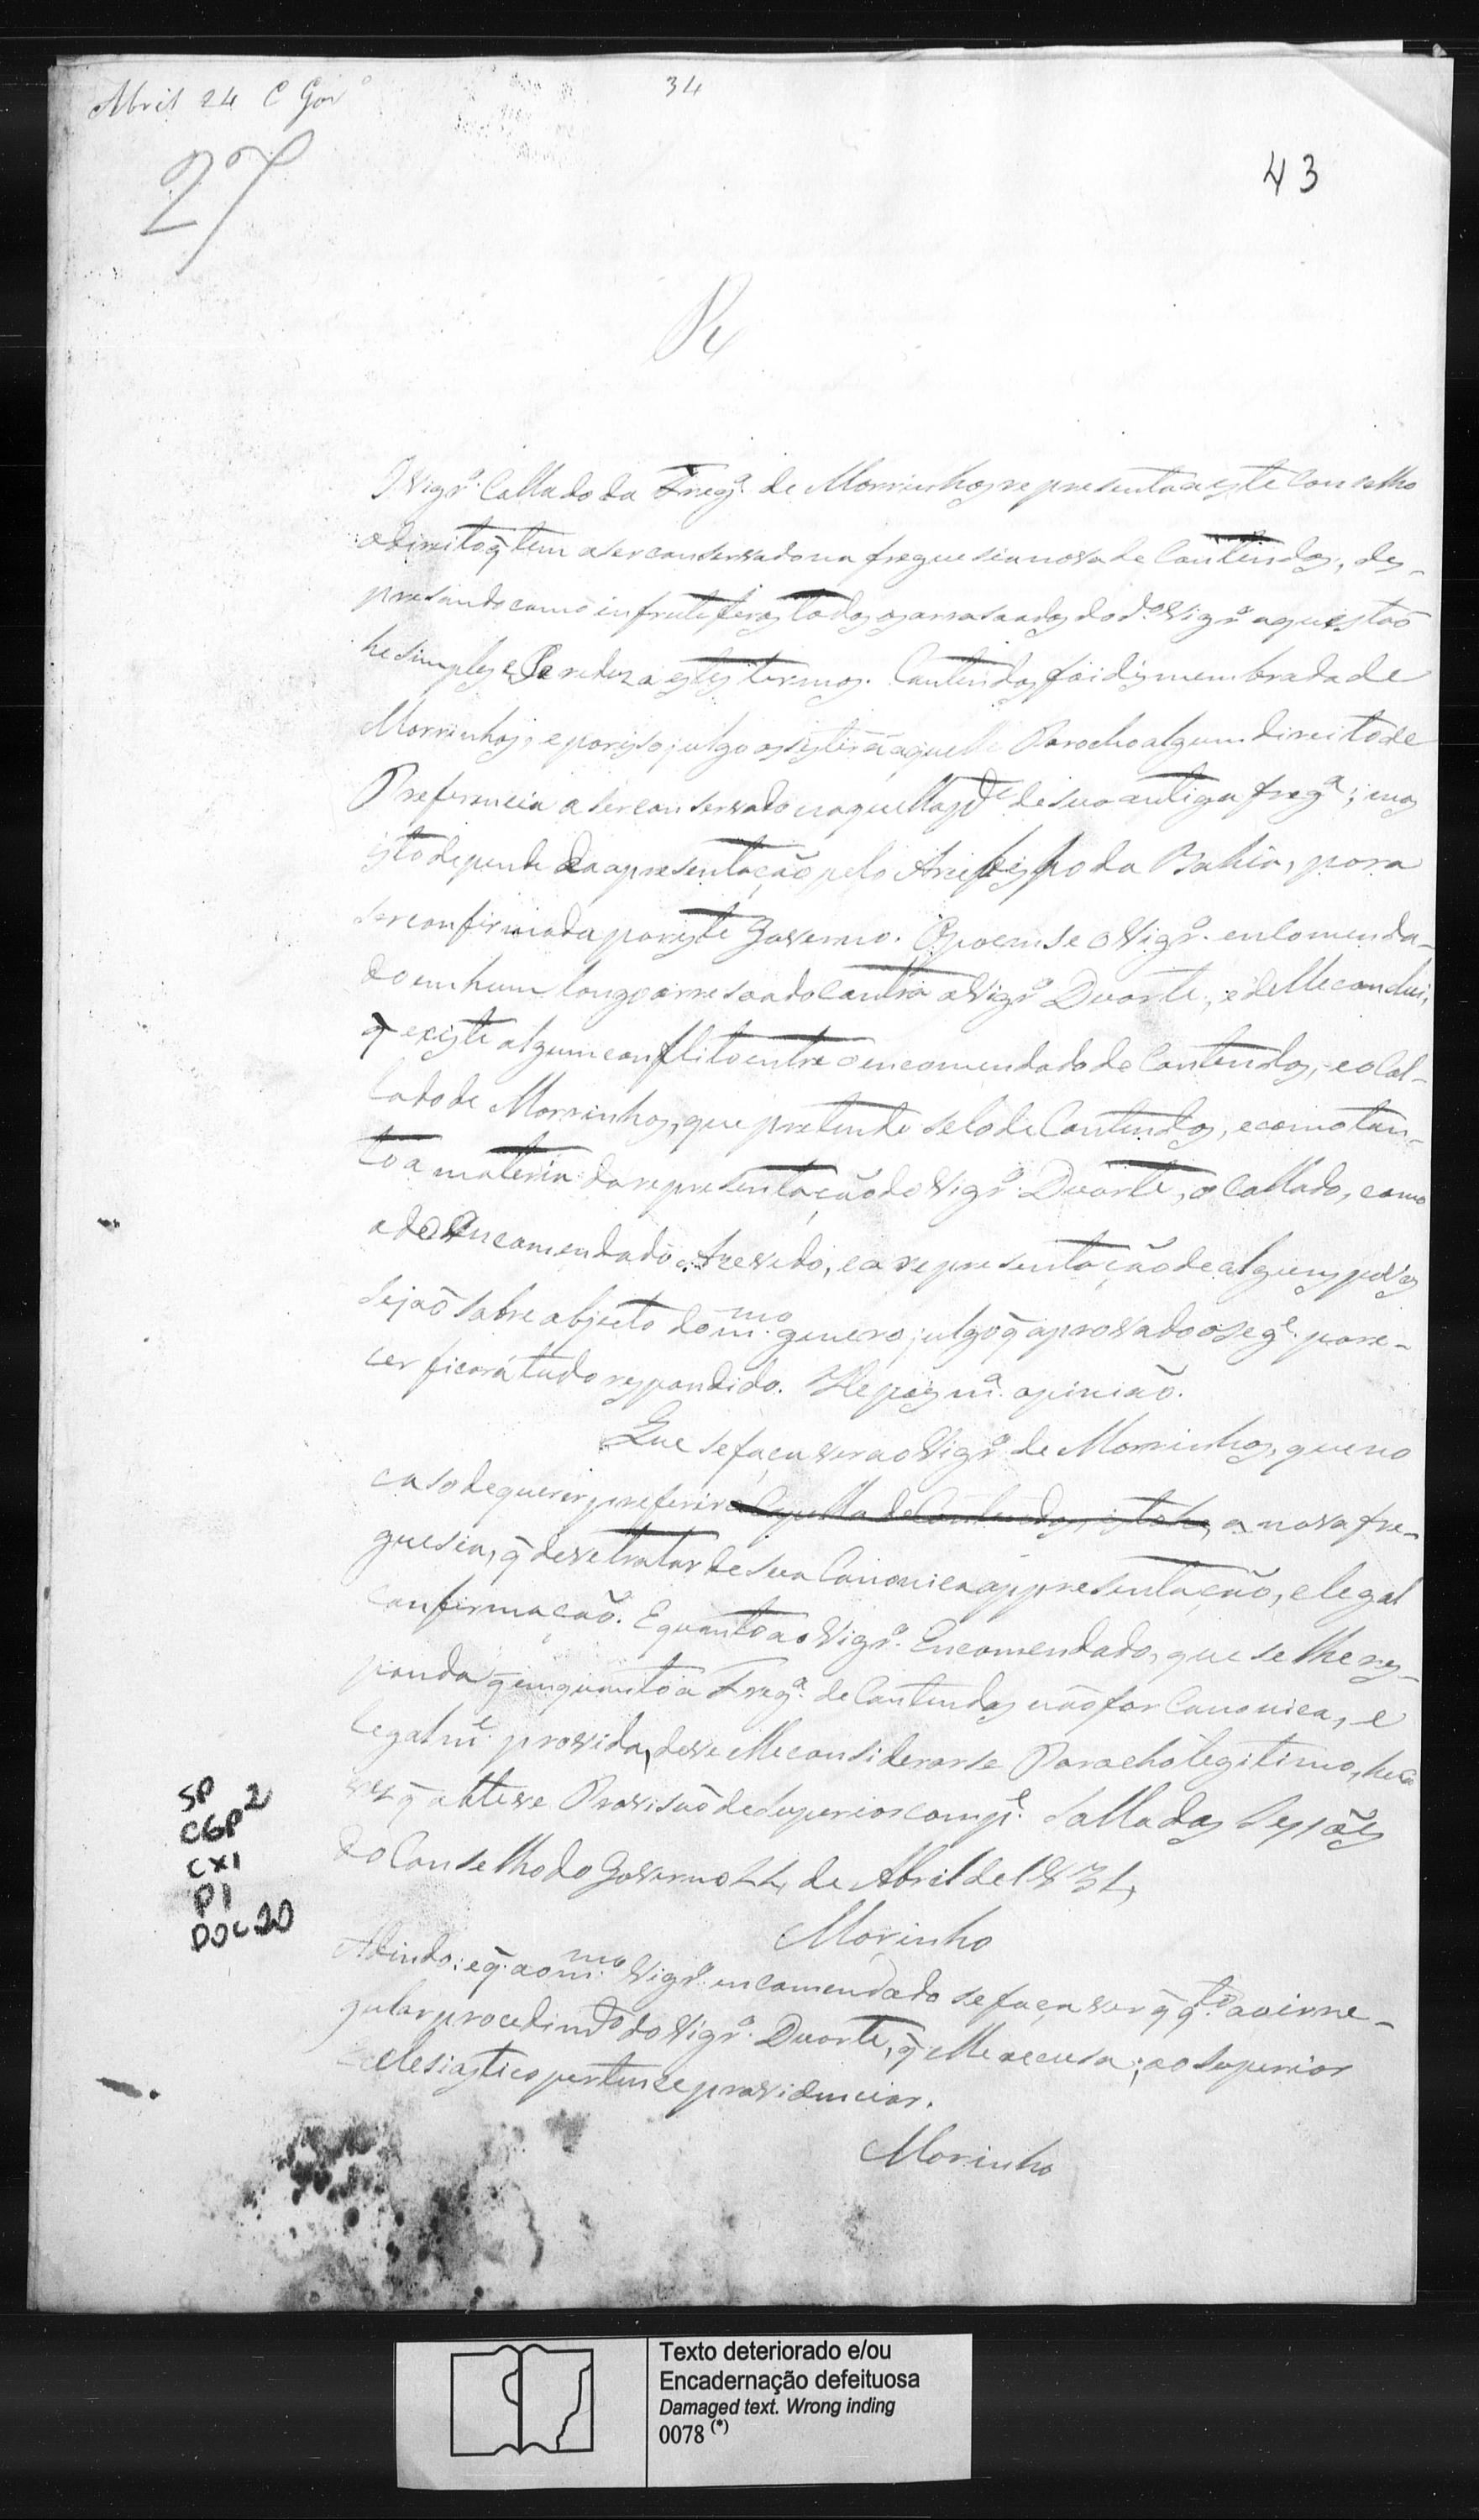 Abril 24 C Govº
34
27
43
O Vigrº Collado da Fregª de Morrinhos representa a este Conselho
o direito q̃ tem a ser conservado na freguesia nova de Contendas, des-
presando como infrutiferos todos os arrasoados do dº Vigrº a questão
he simples e se reduz a estes termos. Contendas foi dismembrada de
Morrinhos, e por isso julgo assistir á aquelle Parocho algum direito de
Preferencia a ser conservado naquella pte de sua antiga fregª; mas
isto depende da apresentação pelo Arcebispo da Bahia, para
ser confirmada por este Governo. Opoem se o Vigrº encomenda-
do em hum longo arresoado contra o Vigrº Duarte, e delle conclui,
q̃ existe algum conflito entre o encomendado de Contendas, e o Col-
lado de Morrinhos, que pretende selo de Contendas, e como tan-
to a materia da representação do Vigrº Duarte, o Collado, como
a do Encomendado Azevedo, e a representação de alguns povos
sejão sobre objecto do mmo genero, julgo q̃ aprovado o segᵉ pare-
cer ficará tudo respondido. He pois mª opinião.
Que se faça ver ao Vigrº de Morrinhos, que no
caso de querer preferir aquella de Contendas, isto he, a nova fre-
guesia, q̃ deve tratar de sua Canonica appresentação, e legal
confirmação. E quanto ao Vigrº Encomendado, que se lhe res-
ponda q̃ emquanto a Fregª de Contendas não for Canonica, e
legalmᵉ provida, deve elle considerarse Parocho legitimo, hua
vez q̃ obteve Provisão de Superior compᵉ. Salla das Sessões
do Conselho do Governo 24 de Abril de 1834
Marinho
Adindo: e q̃ ao mmo Vigrº encomendado se faça ver q̃ qto ao irre-
gular procedimto do Vigrº Duarte, q̃ elle accusa; ao Superior
Ecclesiastico pertence providenciar.
Marinho
SP
CGP2
CX1
P1
DOC20
Texto deteriorado e/ou
Encadernação defeituosa
Damaged text. Wrong inding
0078 (*)